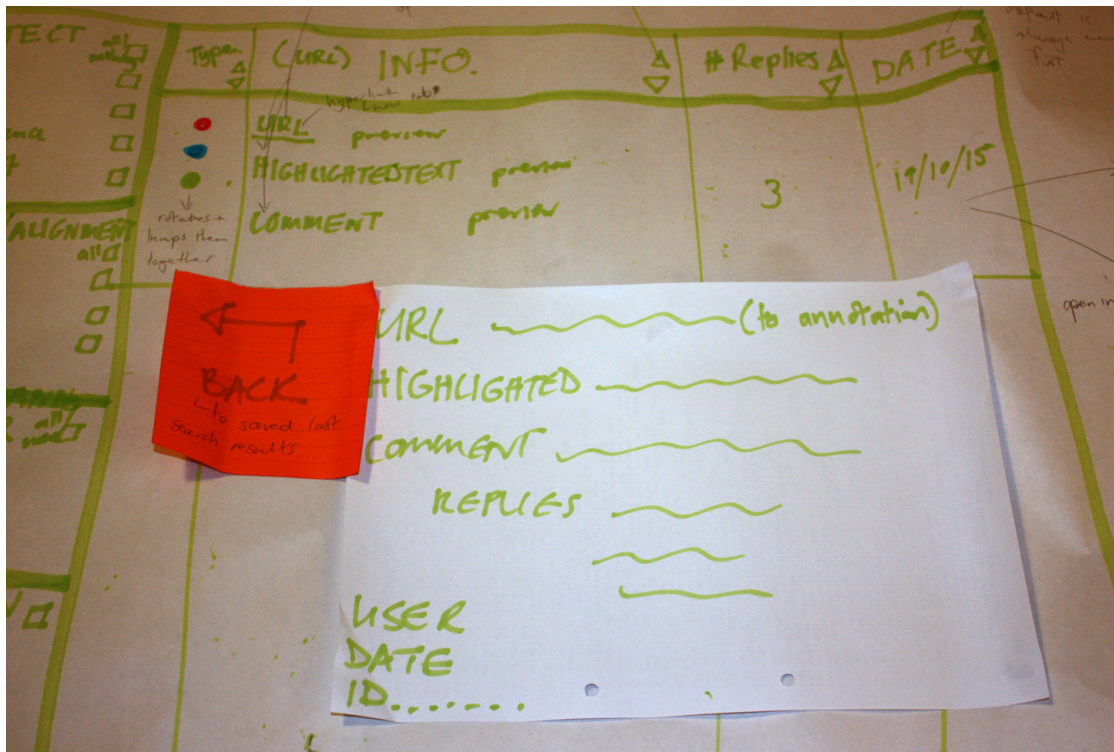 TECT
all
Type.
(URL) INFO.
# Replies
DATE
always
first
hyperlink
URL preview
HIGHLIGHTEDTEXT preview
COMMENT preview
3
19/10/15
rotates +
lumps them
together
ALIGNMENT
all
open in
BACK
to saved last
search results
URL (to annotation)
HIGHLIGHTED
COMMENT
REPLIES
all
USER
DATE
ID.......